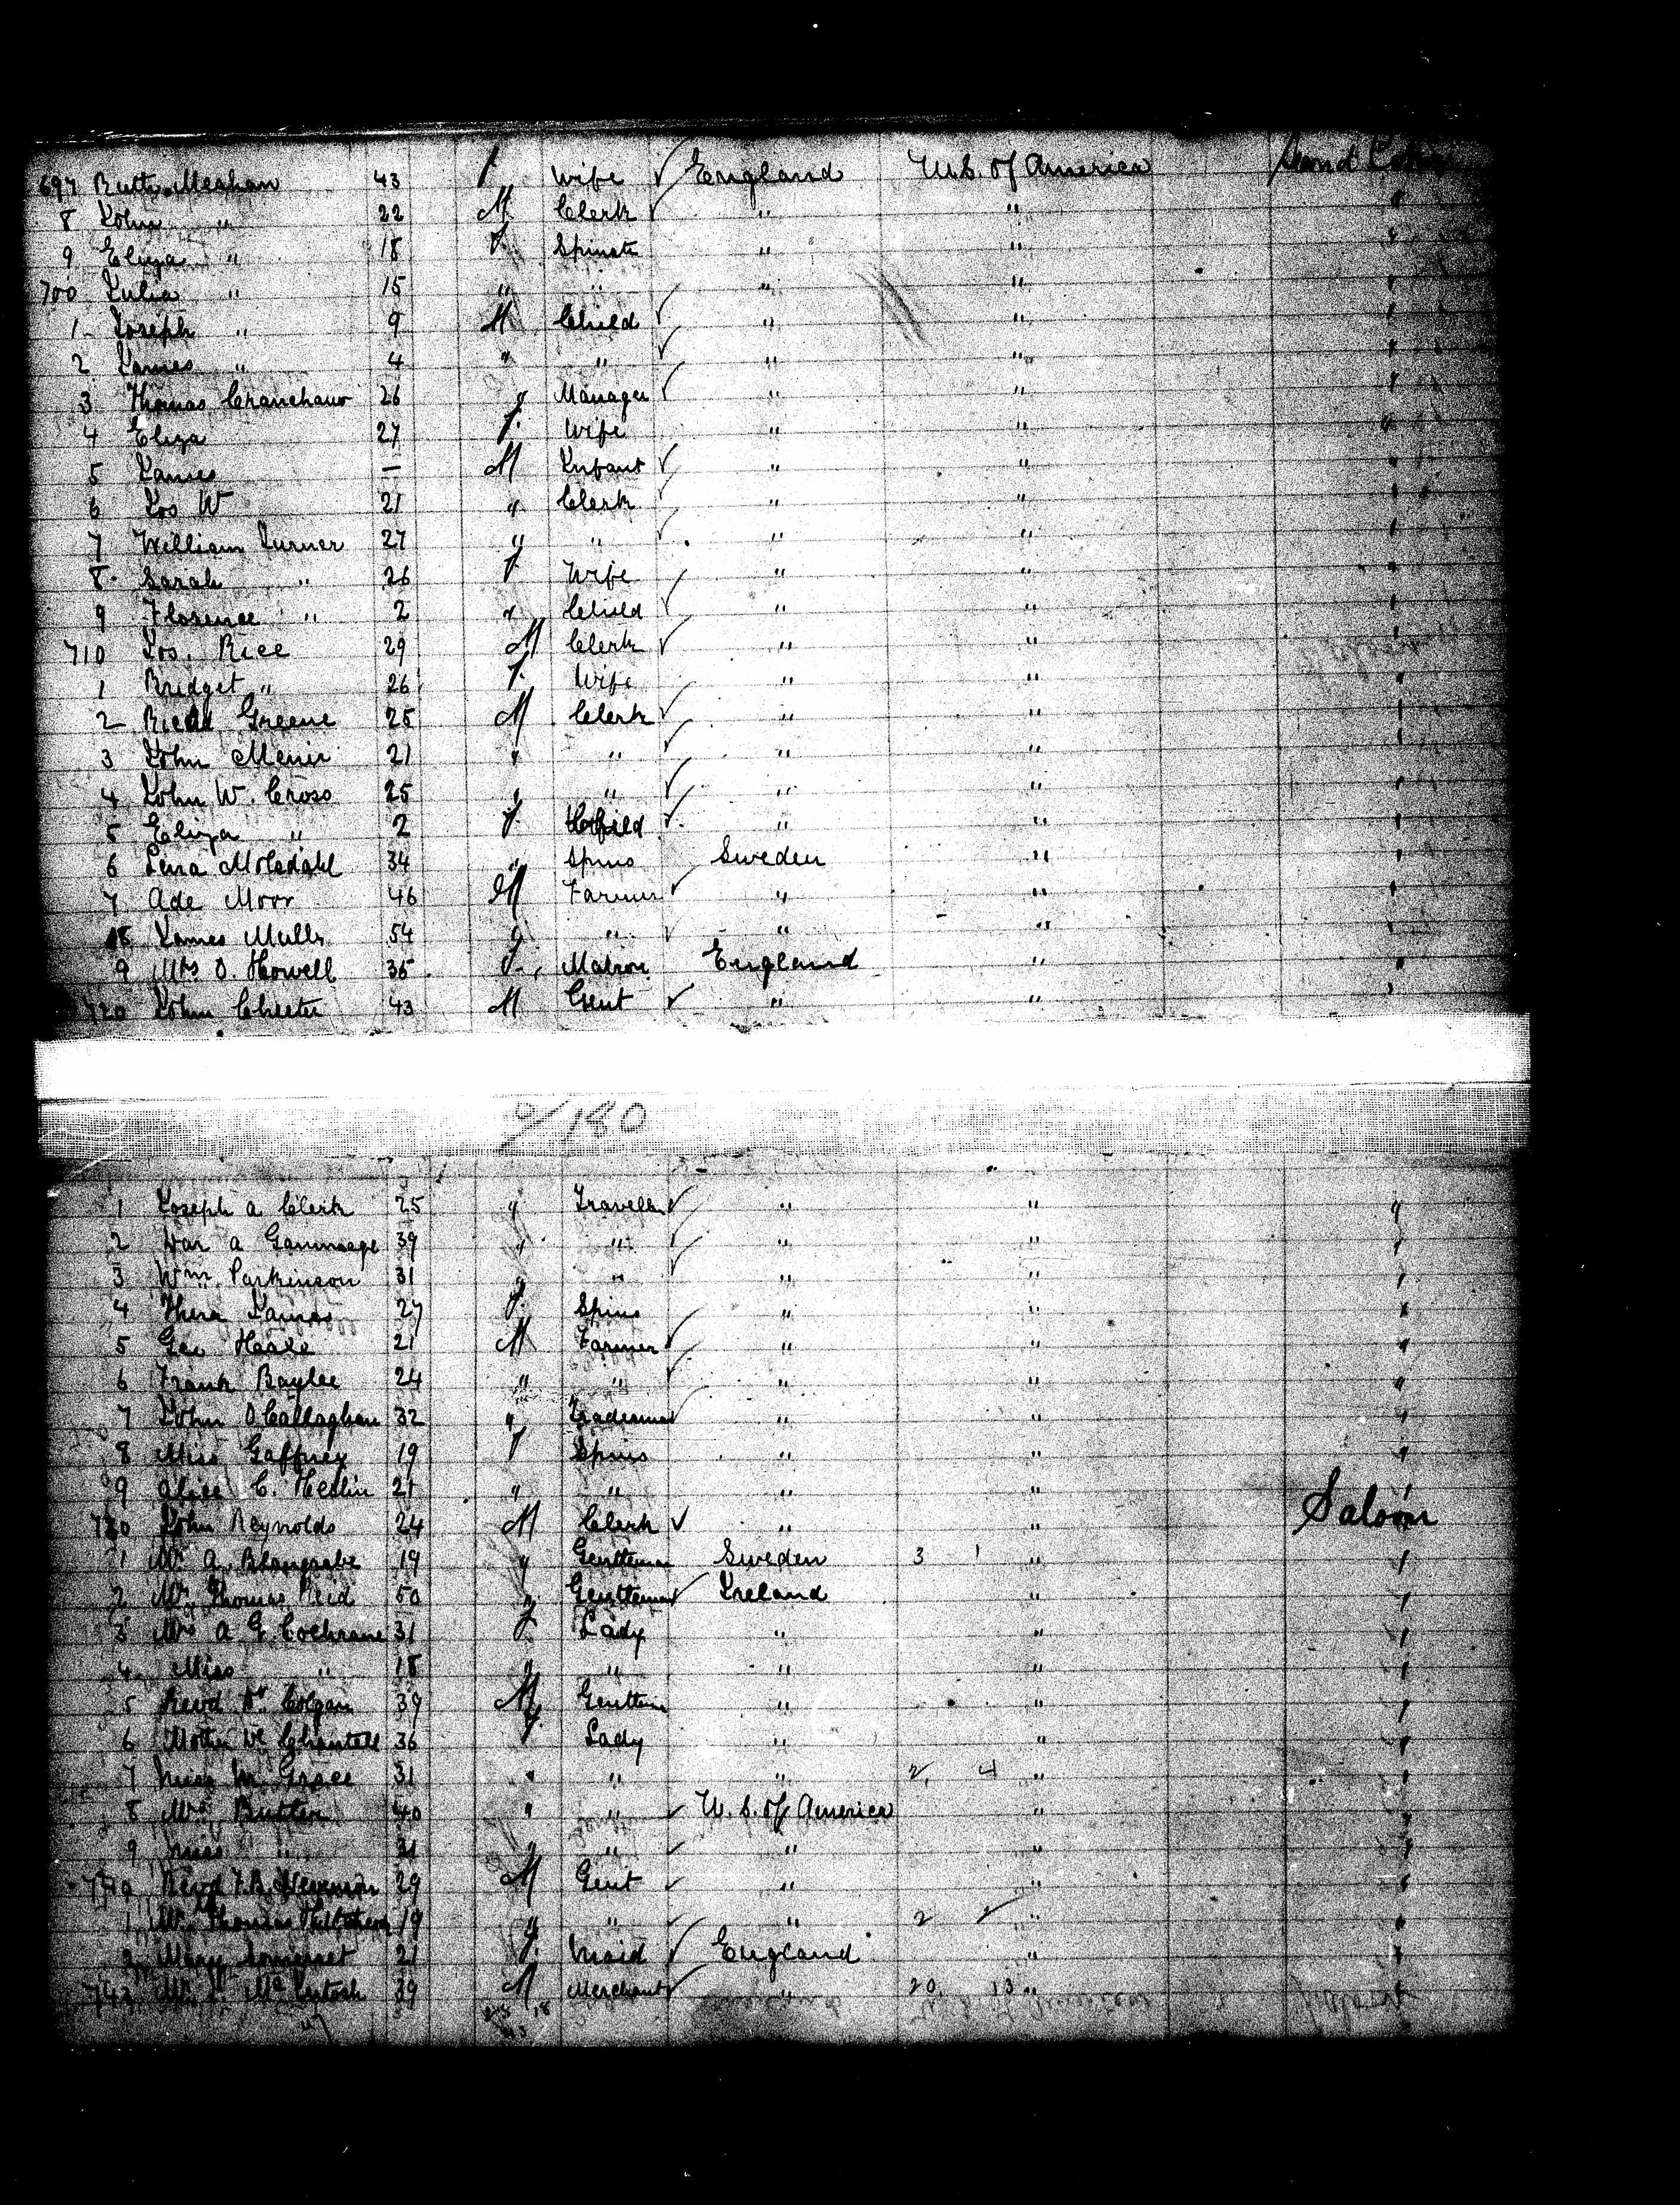 697 Ruth Meahan 43 f wife ✓ England U.S. of America Second Cabin
8 John " 22 M Clerk ✓ " " "
9 Eliza " 18 f. Spinster " " "
700 Julia " 15 " " " " "
1 Joseph " 9 M Child ✓ " " "
2 James " 4 " " ✓ " " "
3 Thomas 26 " Manager ✓ " " "
4 Eliza 27 f. Wife " " "
5 James — M Infant ✓ " " "
6 Jos W 21 " Clerk ✓ " " "
7 William Turner 27 " " ✓ " " "
8 Sarah " 26 f Wife " " "
9 Florence " 2 " Child ✓ " " "
710 Jos. Rice 29 M Clerk ✓ " " "
1 Bridget " 26 f. Wife " " "
2 Richd Greene 25 M Clerk ✓ " " "
3 John 21 " " ✓ " " "
4 John W. Cross 25 " " ✓ " " "
5 Eliza " 2 f. Child ✓ " " "
6 Lena 34 " Spins Sweden " "
7 Ade Moor 46 M Farmer ✓ " " "
18 James Mulls 54 " " ✓ " " "
9 Mrs O. Howell 35 f. Matron England " "
720 John Chester 43 M Gent ✓ " " "
2/180
1 Joseph A Clerk 25 " Traveller ✓ " " "
2 A Gammage 39 " " ✓ " " "
3 Wm. Parkinson 31 " " ✓ " " "
4 James 27 f. Spins " " "
5 Geo 21 M Farmer ✓ " " "
6 Frank Baylee 24 " " ✓ " " "
7 John O'Callaghan 32 " Tradesman ✓ " " "
8 Miss Gaffney 19 f Spins " " "
9 Alice C. 21 " " " " "
730 John Reynolds 24 M Clerk ✓ " " Saloon
1 Mr A. 19 " Gentleman Sweden 3 1 " "
2 Mr Thomas Reid 50 " Gentleman ✓ Ireland " "
3 Mrs A G. Cochrane 31 f. Lady " " "
4 Miss " 18 " " " " "
5 Revd Dr Colgan 39 M Gentlem " " "
6 Mother de Chantell 36 f. Lady " " "
7 Miss M. Grace 31 " " " 2, 4 " "
8 Mrs Butler 40 " " ✓ U.S. of America " "
9 Miss " 31 " " ✓ " " "
740 Revd F.R. 29 M Gent ✓ " " "
1 Mr Thomas 19 " " ✓ " 2 ✓ " "
2 Mary Somerset 21 f. Maid ✓ England " "
743 Mr McIntosh 39 M Merchant ✓ " 20, 13 "
25 18
47 43